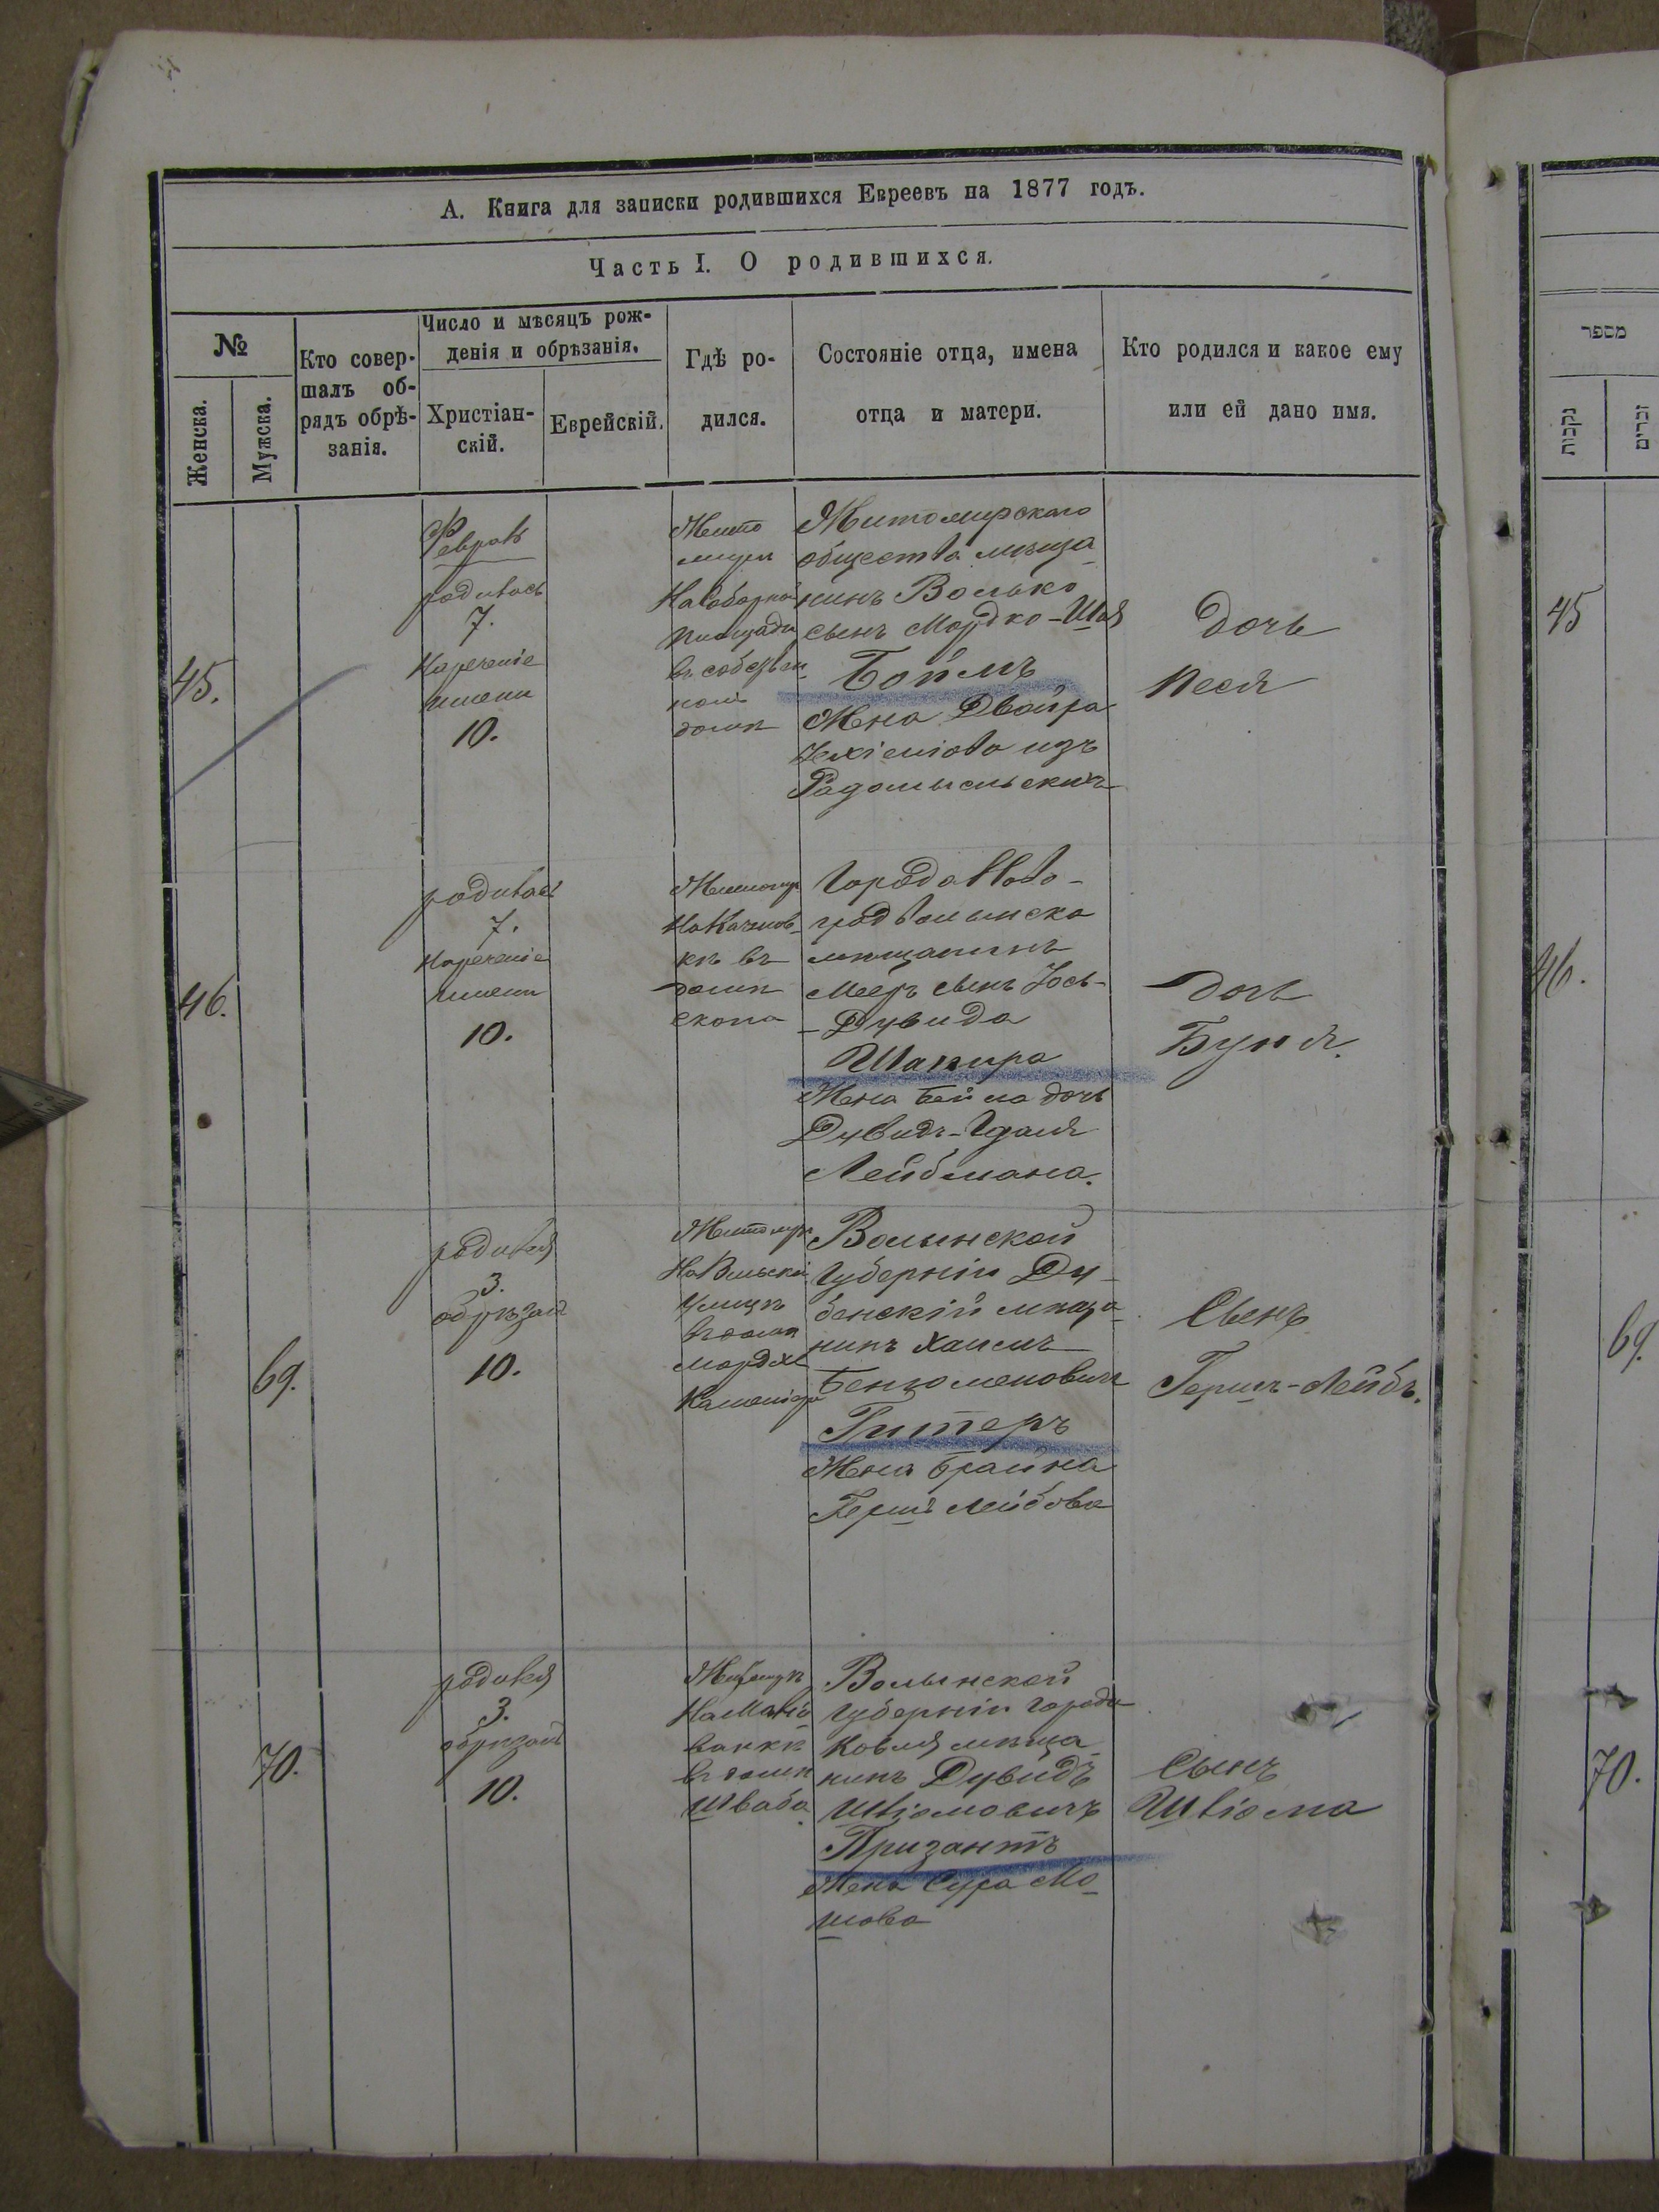 А. Книга для записки родившихся Евреевъ на 1877 годъ.
Часть I. О родившихся.
№
Женска.
Мужска.
Кто совер-
шалъ об-
рядъ обрѣ-
занія.
Число и мѣсяцъ рож-
денія и обрѣзанія.
Христіан-
скій.
Еврейскій.
Гдѣ ро-
дился.
Состояніе отца, имена
отца и матери.
Кто родился и какое ему
или ей дано имя.
45.
Февраль
родилась
7.
Нареченіе
имени
10.
Жито
мирѣ
На Соборной
площади
въ собствен
номъ
домѣ
Житомирскаго
общества мѣща-
нинъ Волько
сынъ Мордко-Шая
Боймъ
Жена Двойра
изъ
Радомысльскихъ
Дочь
Песя
46.
родилась
7.
Нареченіе
имени
10.
Житомирѣ
На Качинов-
кѣ въ
домѣ
Города Ново-
градволынска
мѣщанинъ
Мееръ сынъ Іось-
-Дувида
Шапира
Жена Бейла дочь
Дувидъ-Гдаля
Лейбмана.
Дочь
Буня.
69.
родился
3.
обрѣзанъ
10.
Житомирѣ
На Вильской
улицѣ
въ домѣ
Волынской
губерніи Ду-
бенскій мѣща-
нинъ Хаимъ
Беньюменовичъ
Гитеръ
Жена Брайна
Гершъ Лейбова
Сынъ
Гершъ-Лейбъ.
70.
родился
3.
обрѣзанъ
10.
Житомирѣ
На Маліо-
ванкѣ
въ домѣ
Шваба.
Волынской
губерніи города
Ковля мѣща-
нинъ Дувидъ
Шліомовичъ
Призантъ
Жена Сура Мо-
шова
Сынъ
Шліома
מספר
נקבות
זכרים
45
46.
69.
70.